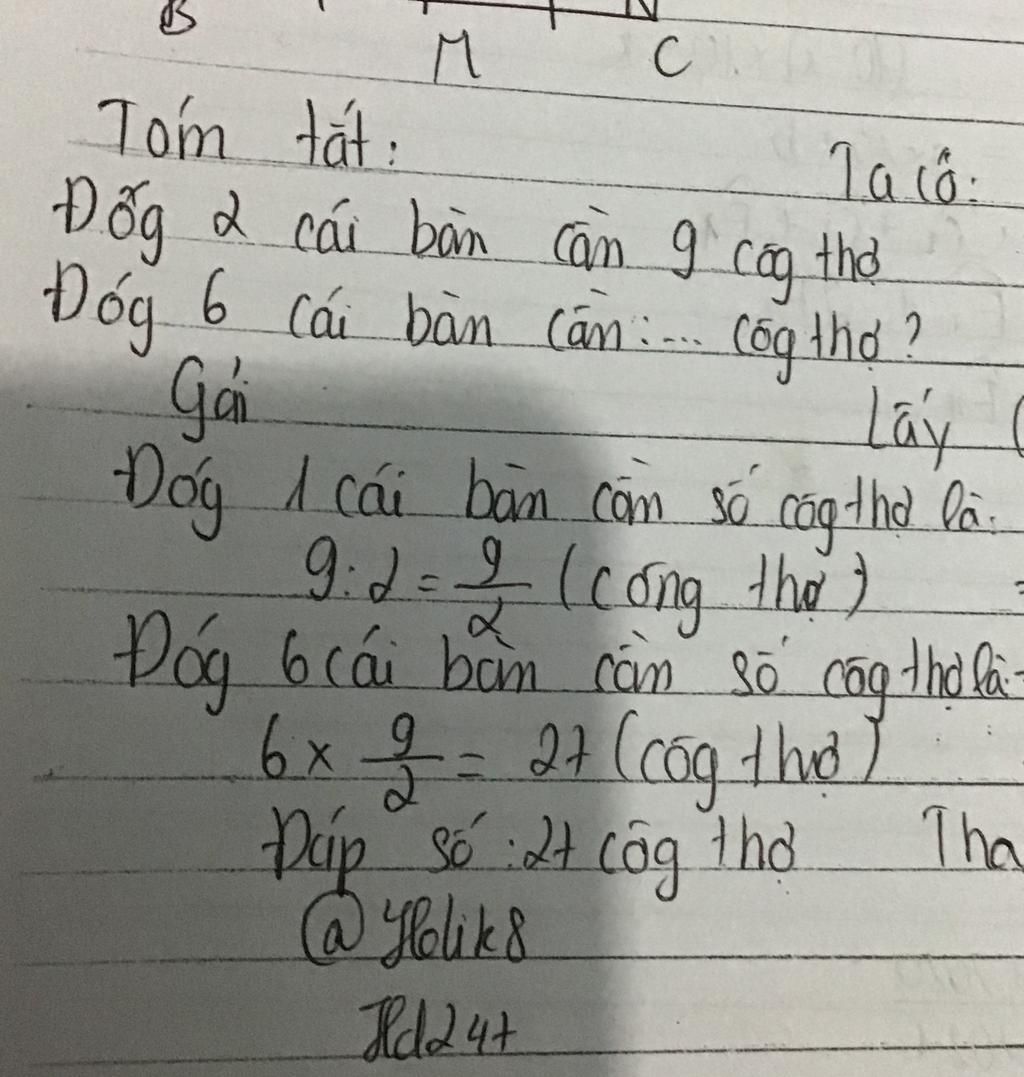 B
M C
Tóm tắt:
Ta có:
Đóg 2 cái bàn cần 9 côg thợ
Đóg 6 cái bàn cần:... côg thợ?
Gải
Lấy (
Đóg 1 cái bàn cần số côg thợ là:
9:2 = 9/2 (công thợ)
Đóg 6 cái bàn cần số côg thợ là:
6 x 9/2 = 27 (côg thợ)
Đáp số: 27 côg thợ
Tha
@
Hd247